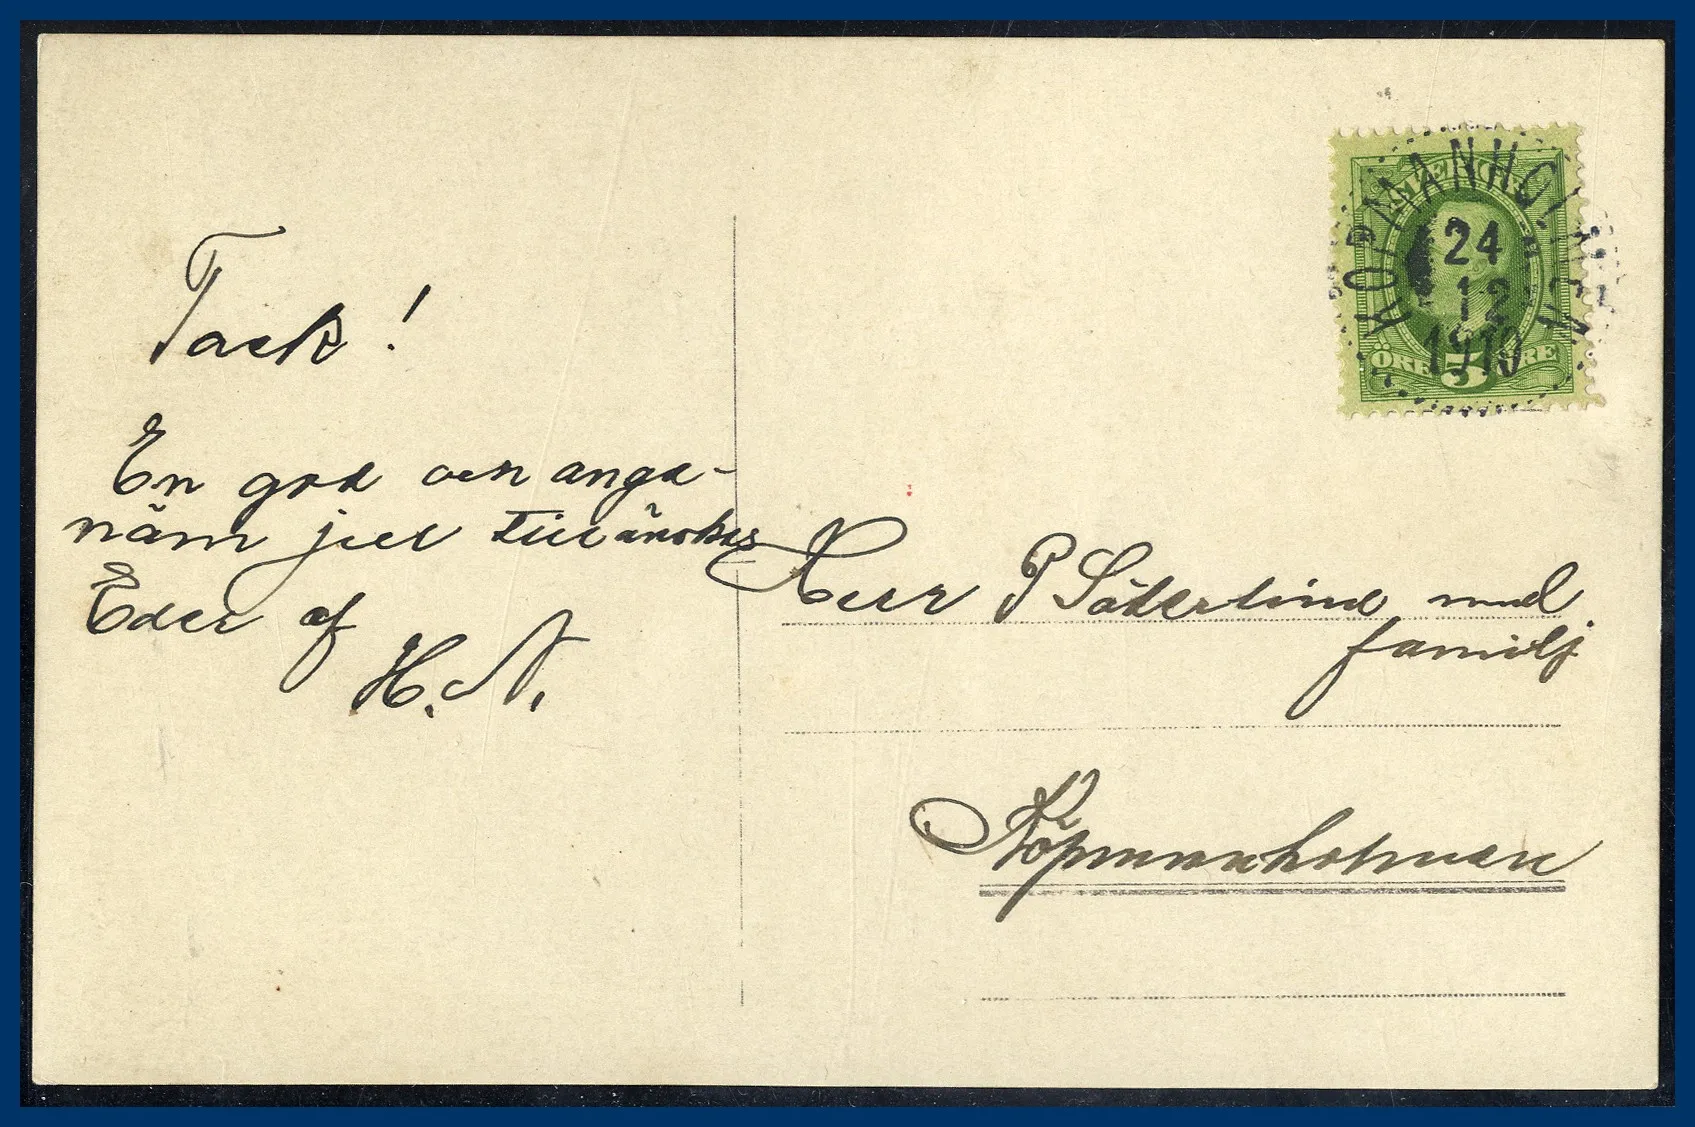 Tack!
En god och anga-
näm jul tillönskas
Eder af
H. N.
KÖPMANHOLMEN
24
12
1910
SVERIGE
ÖRE 5 ÖRE
Herr P Söderlind med
familj
Köpmanholmen